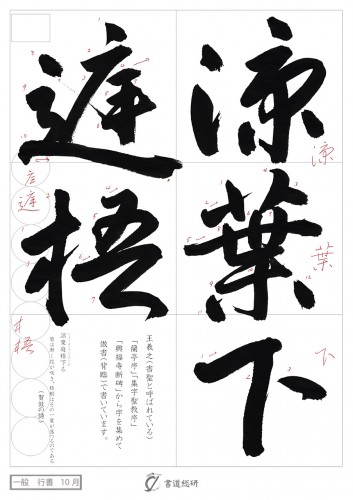 涼葉下
庭梧
涼
葉
下
庭
梧
王羲之(書聖と呼ばれている)
「蘭亭序」「集字聖教序」
「興福寺断碑」から字を集めて
倣書(背臨)で書いています。
一般 行書 10月
書道総研